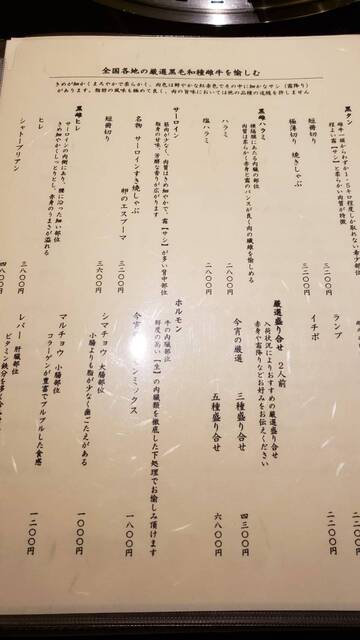 全国各地の厳選黒毛和種雌牛を愉しむ
きめが細かくまろやかで柔らかく、肉色は鮮やかな紅赤色でその中に細かなサシ（霜降り）
があります。脂肪の風味も極めて良く、肉の旨味においては他の品種の追随を許しません
黒タン
雌牛一頭からわずか1・5キロ程度しか取れない希少部位
程よい霜【サシ】と柔らかい肉質が特徴
短冊切り 三二〇〇円
極薄切り 焼きしゃぶ 三二〇〇円
黒雌ハラミ
横隔膜にあたる内臓の部位
肉質は柔らかく赤身と霜のバランスが良く肉の繊維を愉しめる
ハラミ 二八〇〇円
塩ハラミ 二八〇〇円
サーロイン
筋肉が少なく、肉質はきめ細やかで、霜【サシ】が多い背中部位
脂身の甘味、芳醇な香りが広がります
名物 サーロインすき焼しゃぶ 卵のエスプーマ 三二〇〇円
短冊切り 三六〇〇円
黒雌ヒレ
サーロインの内側にあり、腰に沿った細い部位
きめ細やかでしっとりとし、赤身のうまさが溢れる
ヒレ 三八〇〇円
シャトーブリアン 四八〇〇円
ランプ
イチボ
厳選盛り合せ 2人前
入荷状況によりおすすめの厳選盛り合せ
赤身や霜降りなどお好みをお伝えください
今宵の厳選 三種盛り合せ 四三〇〇円
五種盛り合せ 六八〇〇円
ホルモン
牛の内臓部位
鮮度のあい【生】の内臓類を徹底した下処理でお愉しみ頂けます
ンミックス 一八〇〇円
シマチョウ 大腸部位
小腸よりも脂が少なく歯ごたえがある
一〇〇〇円
マルチョウ 小腸部位
コラーゲンが豊富でプルプルした食感
一二〇〇円
レバー 肝臓部位
ビタミン鉄分を多く